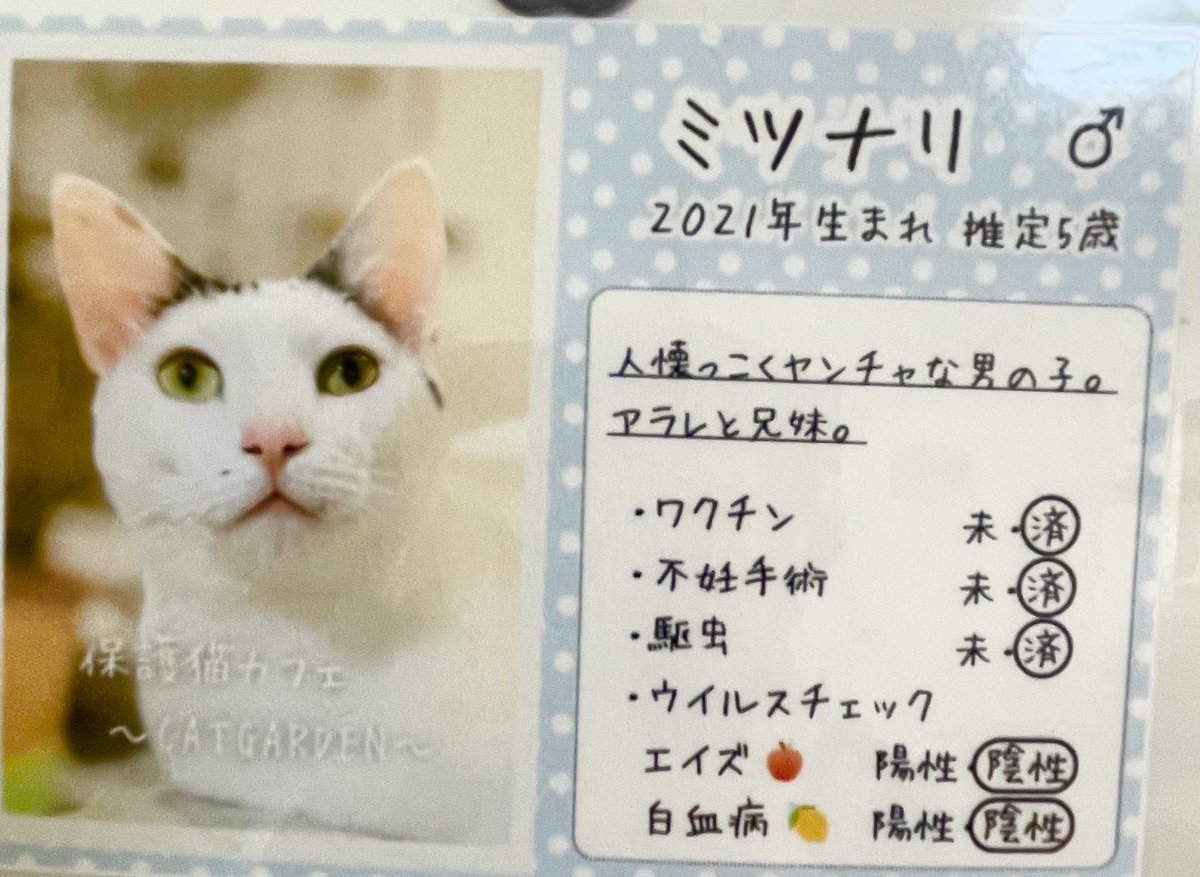 ミツナリ ♂
2021年生まれ 推定5歳
人懐っこくヤンチャな男の子。
アラレと兄妹。
・ワクチン 未・済
・不妊手術 未・済
・駆虫 未・済
・ウイルスチェック
エイズ🍎 陽性・陰性
白血病🍋 陽性・陰性
保護猫カフェ
～CATGARDEN～